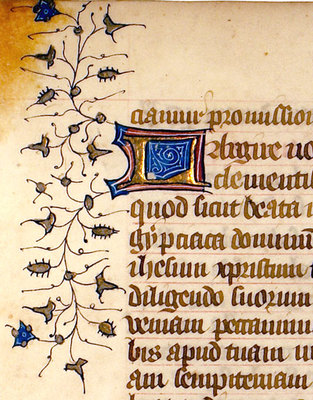 ciamur promission
Largire no
clementi
quod sicut beata
gypciaca dominum
ihesum xpristum
diligendo suorum
veniam peccaminu
bis apud tuam m
am sempiternam